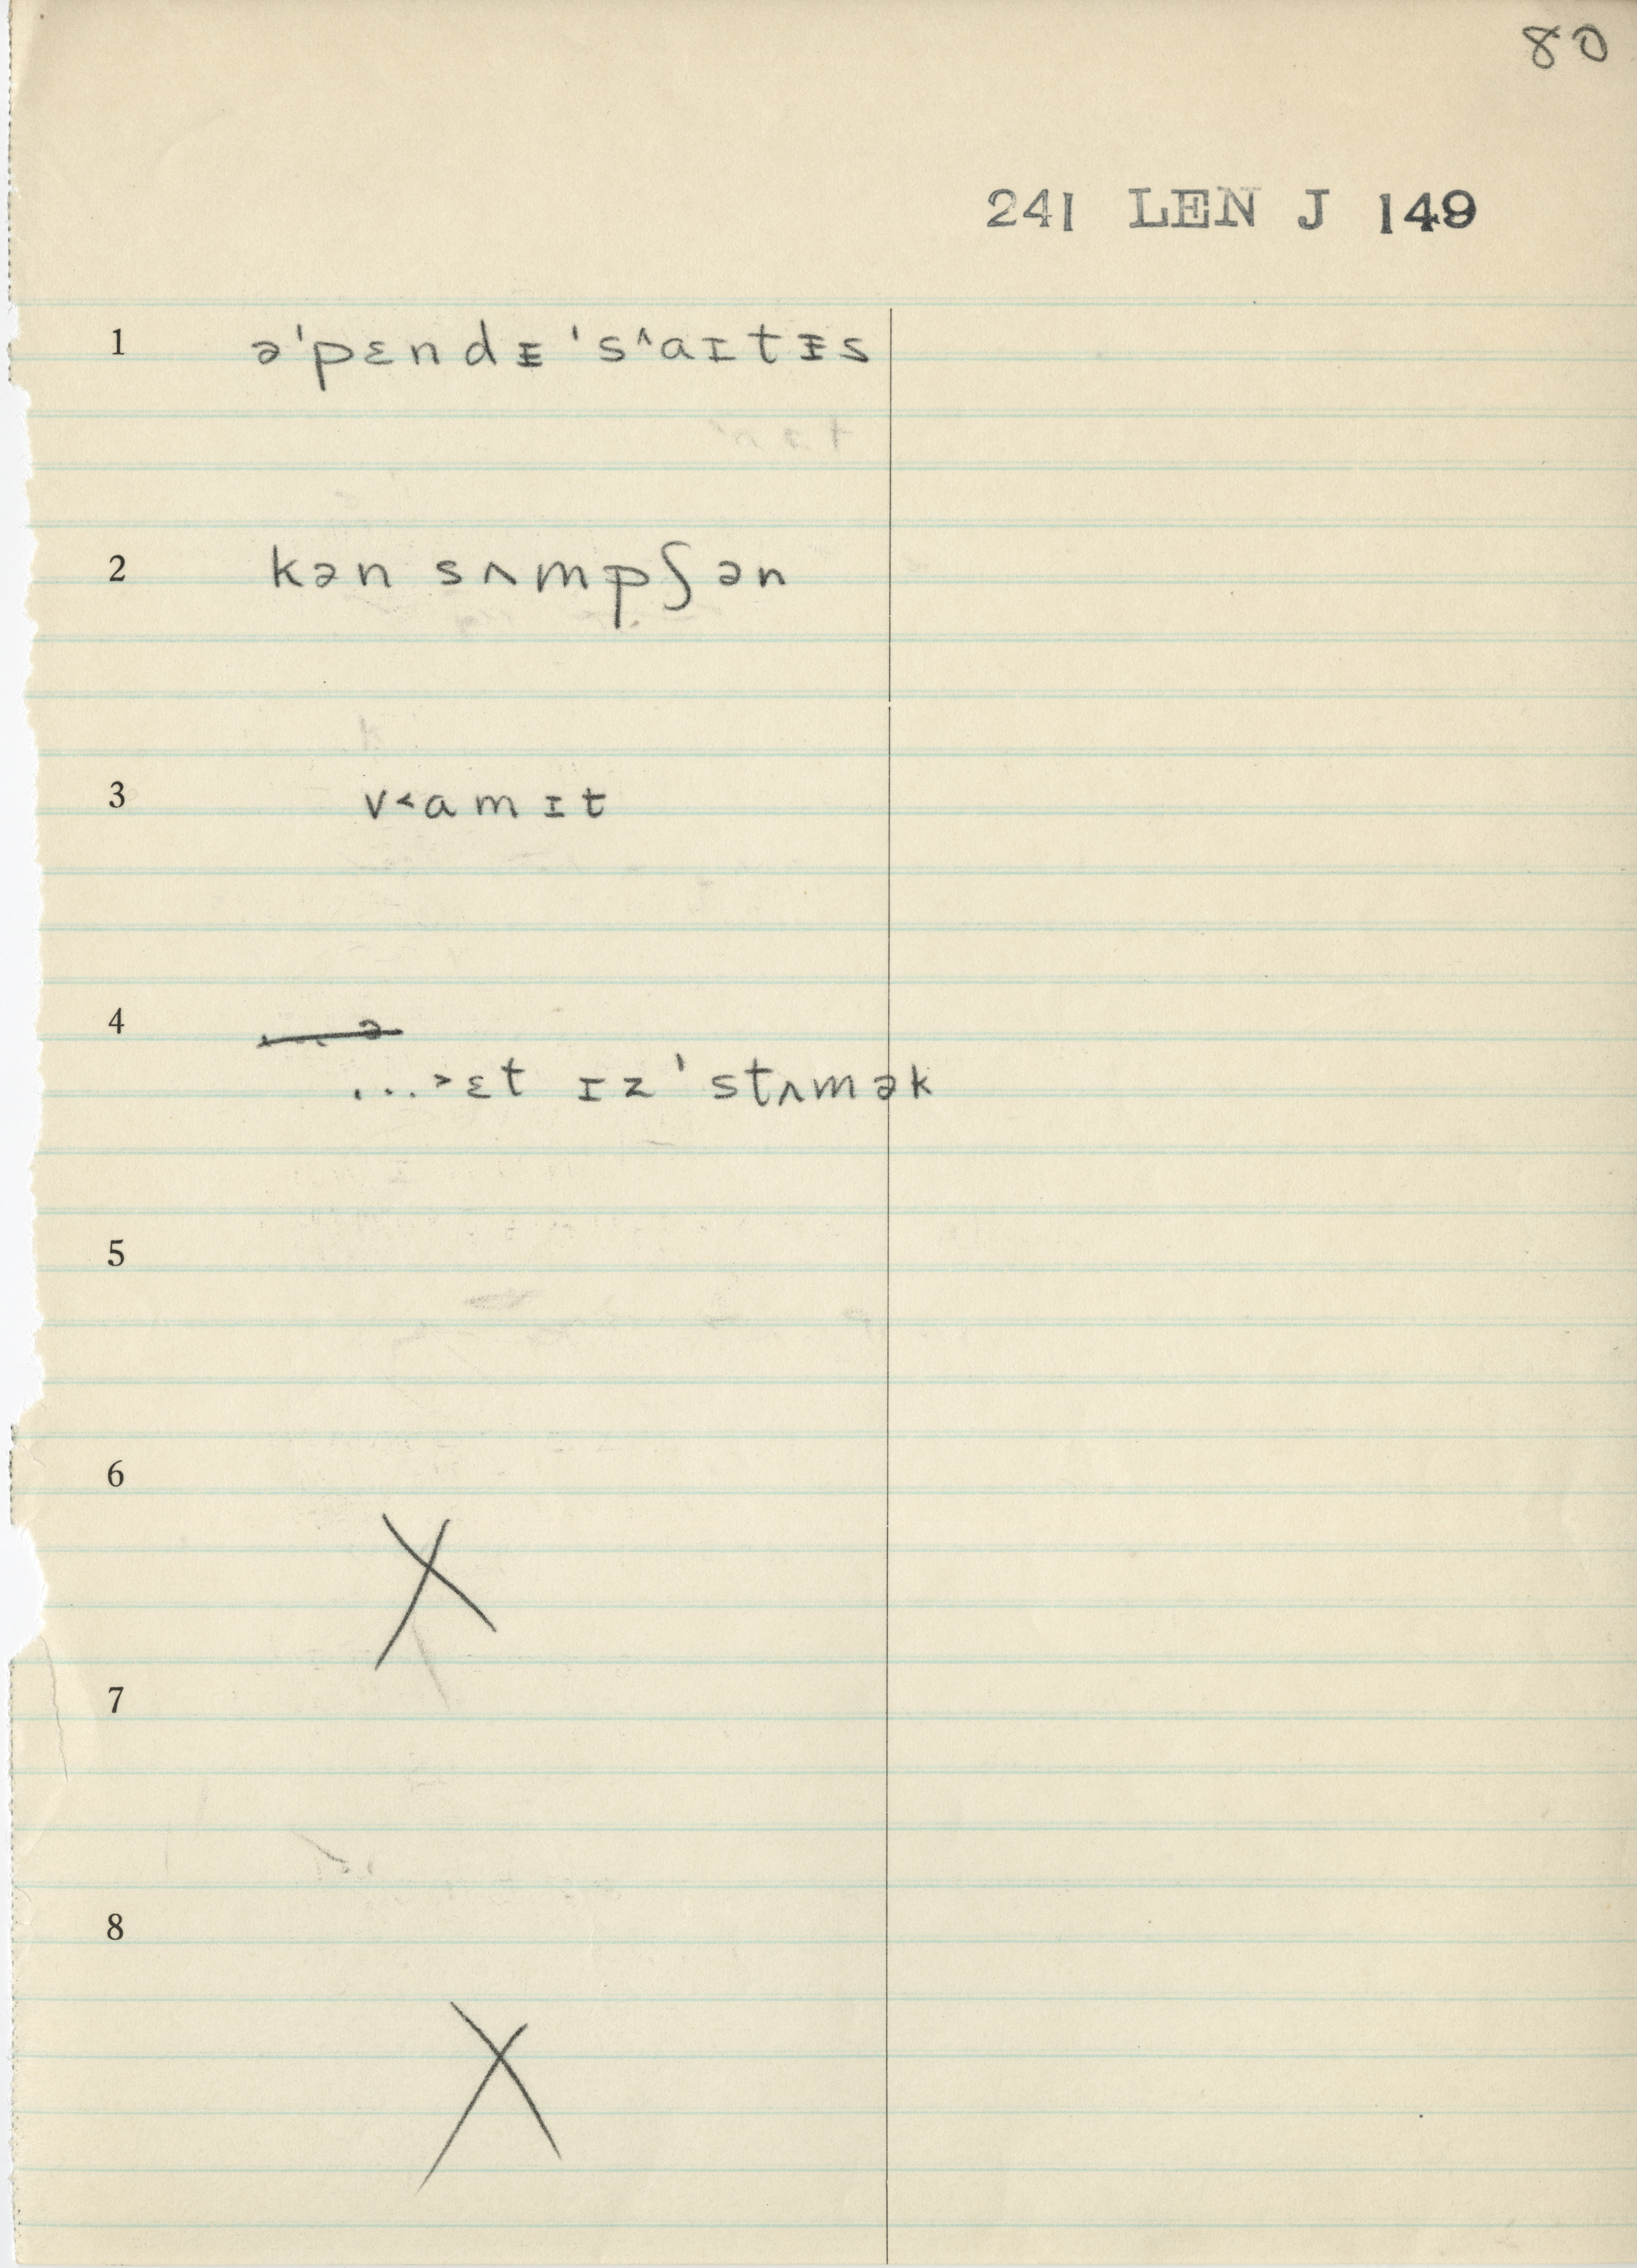 80
241 LEN J 149
1 ə'pɛndᵻ's^aɪtᵻs
2 kən sʌmpʃən
3 v<amɪt
4
...>ɛt ɪz 'stʌmək
5
6
X
7
8
X